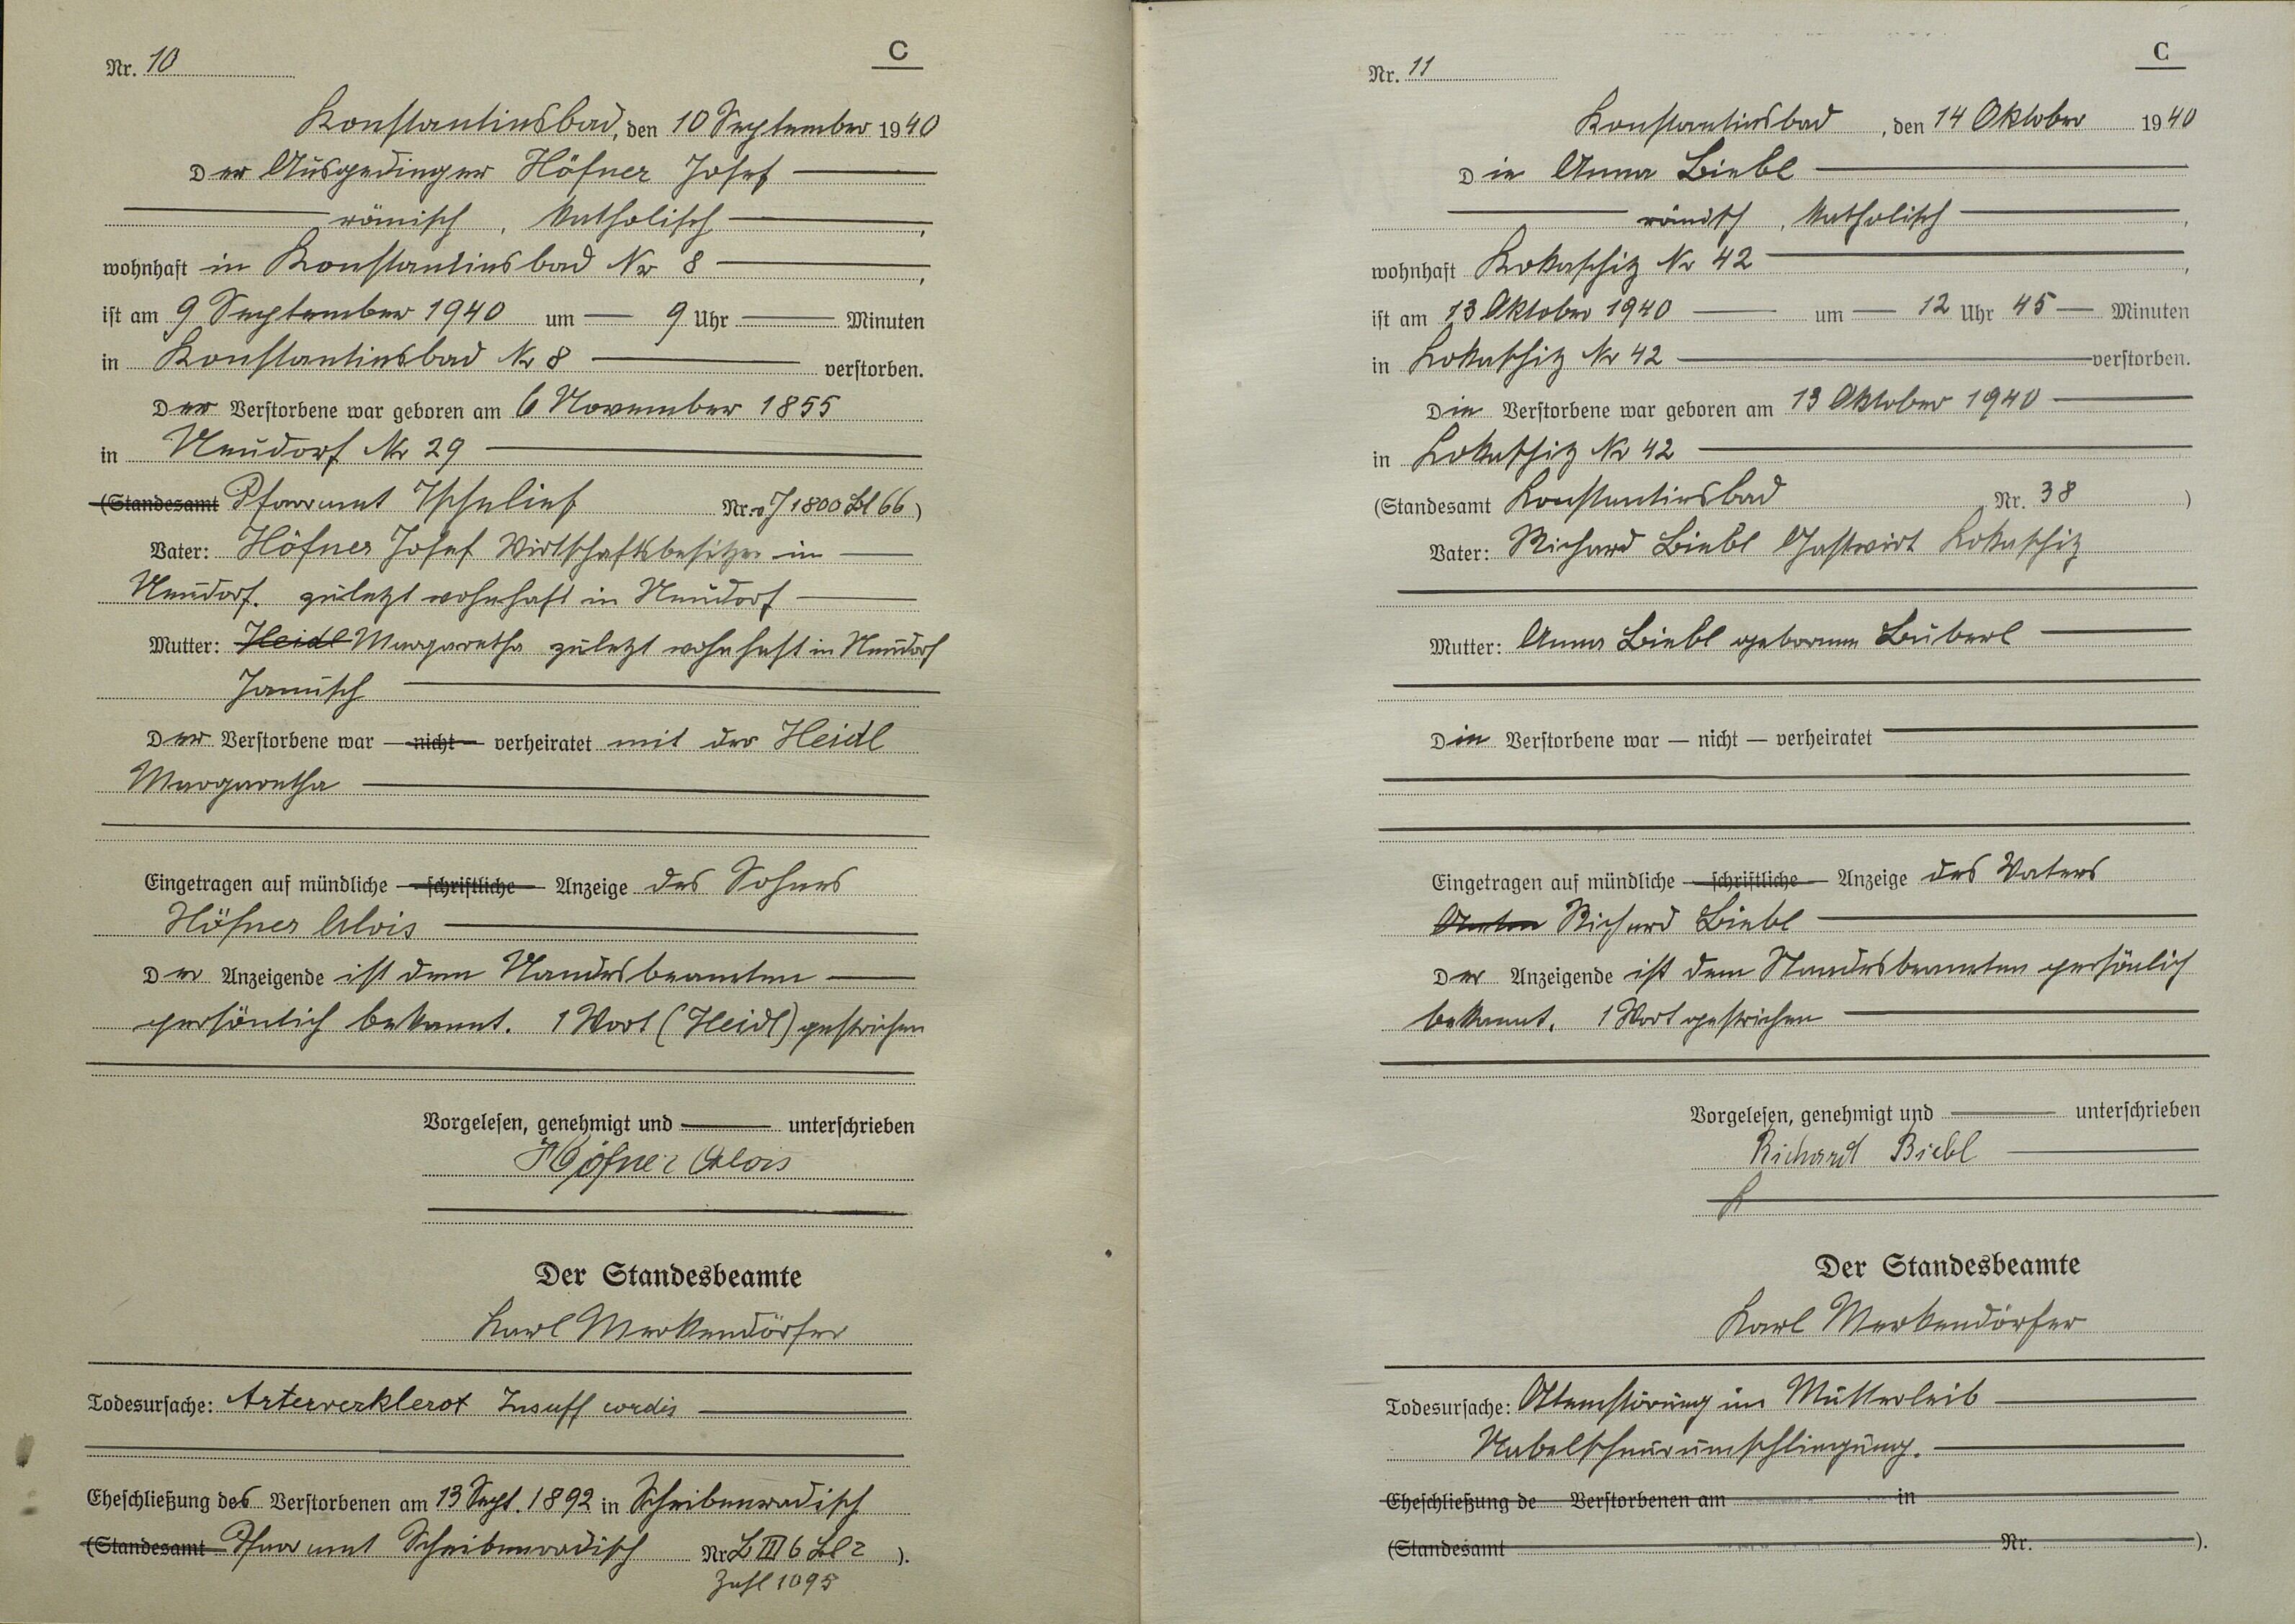 Nr. 10
C
Konstantinsbad, den 10 September 1940
Der Ausgedinger Höfner Josef
römisch, katholisch,
wohnhaft in Konstantinsbad Nr 8,
ist am 9 September 1940 um 9 Uhr Minuten
in Konstantinsbad Nr 8 verstorben.
Der Verstorbene war geboren am 6 November 1855
in Neudorf Nr 29
(Standesamt Pfarramt Nr. 1800 Bl 66)
Vater: Höfner Josef Wirtschaftsbesitzer in
Neudorf. zuletzt wohnhaft in Neudorf
Mutter: Heidl Margaretha zuletzt wohnhaft in Neudorf
Der Verstorbene war — nicht — verheiratet mit der Heidl
Margaretha
Eingetragen auf mündliche — schriftliche — Anzeige des Sohnes
Höfner Alois
Der Anzeigende ist dem Standesbeamten
persönlich bekannt. 1 Wort (Heidl) gestrichen
Vorgelesen, genehmigt und unterschrieben
Höfner Alois
Der Standesbeamte
Karl Merkendörfer
Todesursache: Insuff cordis
Eheschließung des Verstorbenen am 13 Sept. 1892 in Scheibenradisch
(Standesamt Pfarramt Scheibenradisch Nr L III 6 Bl 2).
Zahl 1095
Nr. 11
C
Konstantinsbad, den 14 Oktober 1940
Die Anna Biebl
römisch, katholisch,
wohnhaft Lokaschitz Nr 42,
ist am 13 Oktober 1940 um 12 Uhr 45 Minuten
in Lokaschitz Nr 42 verstorben.
Die Verstorbene war geboren am 13 Oktober 1940
in Lokaschitz Nr 42
(Standesamt Konstantinsbad Nr. 38)
Vater: Richard Biebl Gastwirt Lokaschitz
Mutter: Anna Biebl geborene
Die Verstorbene war — nicht — verheiratet
Eingetragen auf mündliche — schriftliche — Anzeige des Vaters
Anton Richard Biebl
Der Anzeigende ist dem Standesbeamten persönlich
bekannt. 1 Wort gestrichen
Vorgelesen, genehmigt und unterschrieben
Richard Biebl
Der Standesbeamte
Karl Merkendörfer
Todesursache: Atemstörung im Mutterleib
Nabelschnurumschlingung.
Eheschließung de Verstorbenen am in
(Standesamt Nr. ).